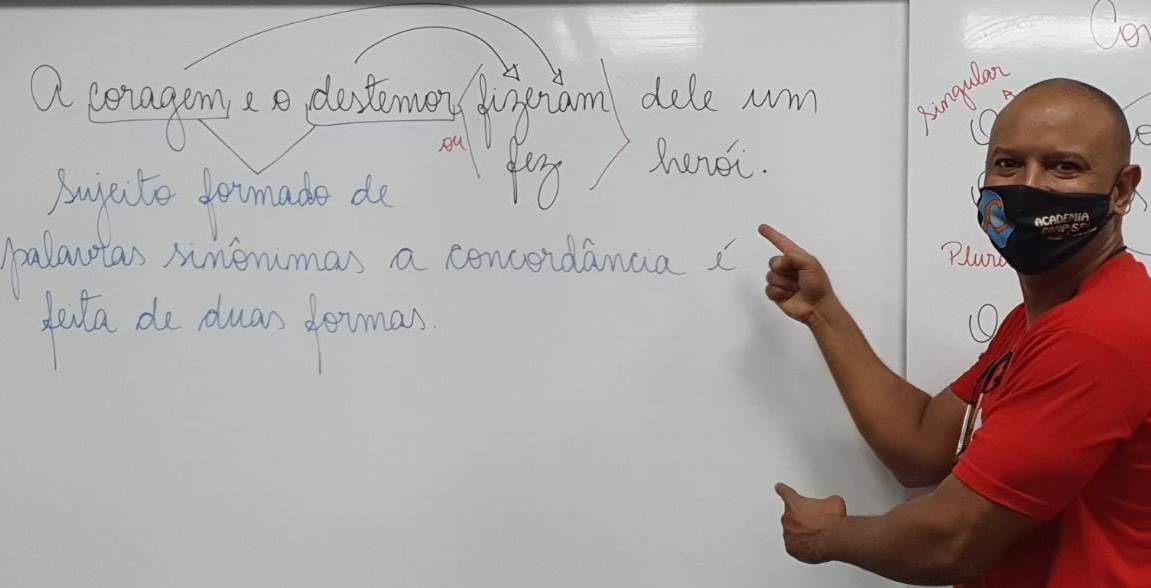 A coragem e o destemor fizeram dele um
ou fez herói.
Sujeito formado de
palavras sinônimas a concordância é
feita de duas formas.
Con
singular
O
Plura
O
ACADEMIA